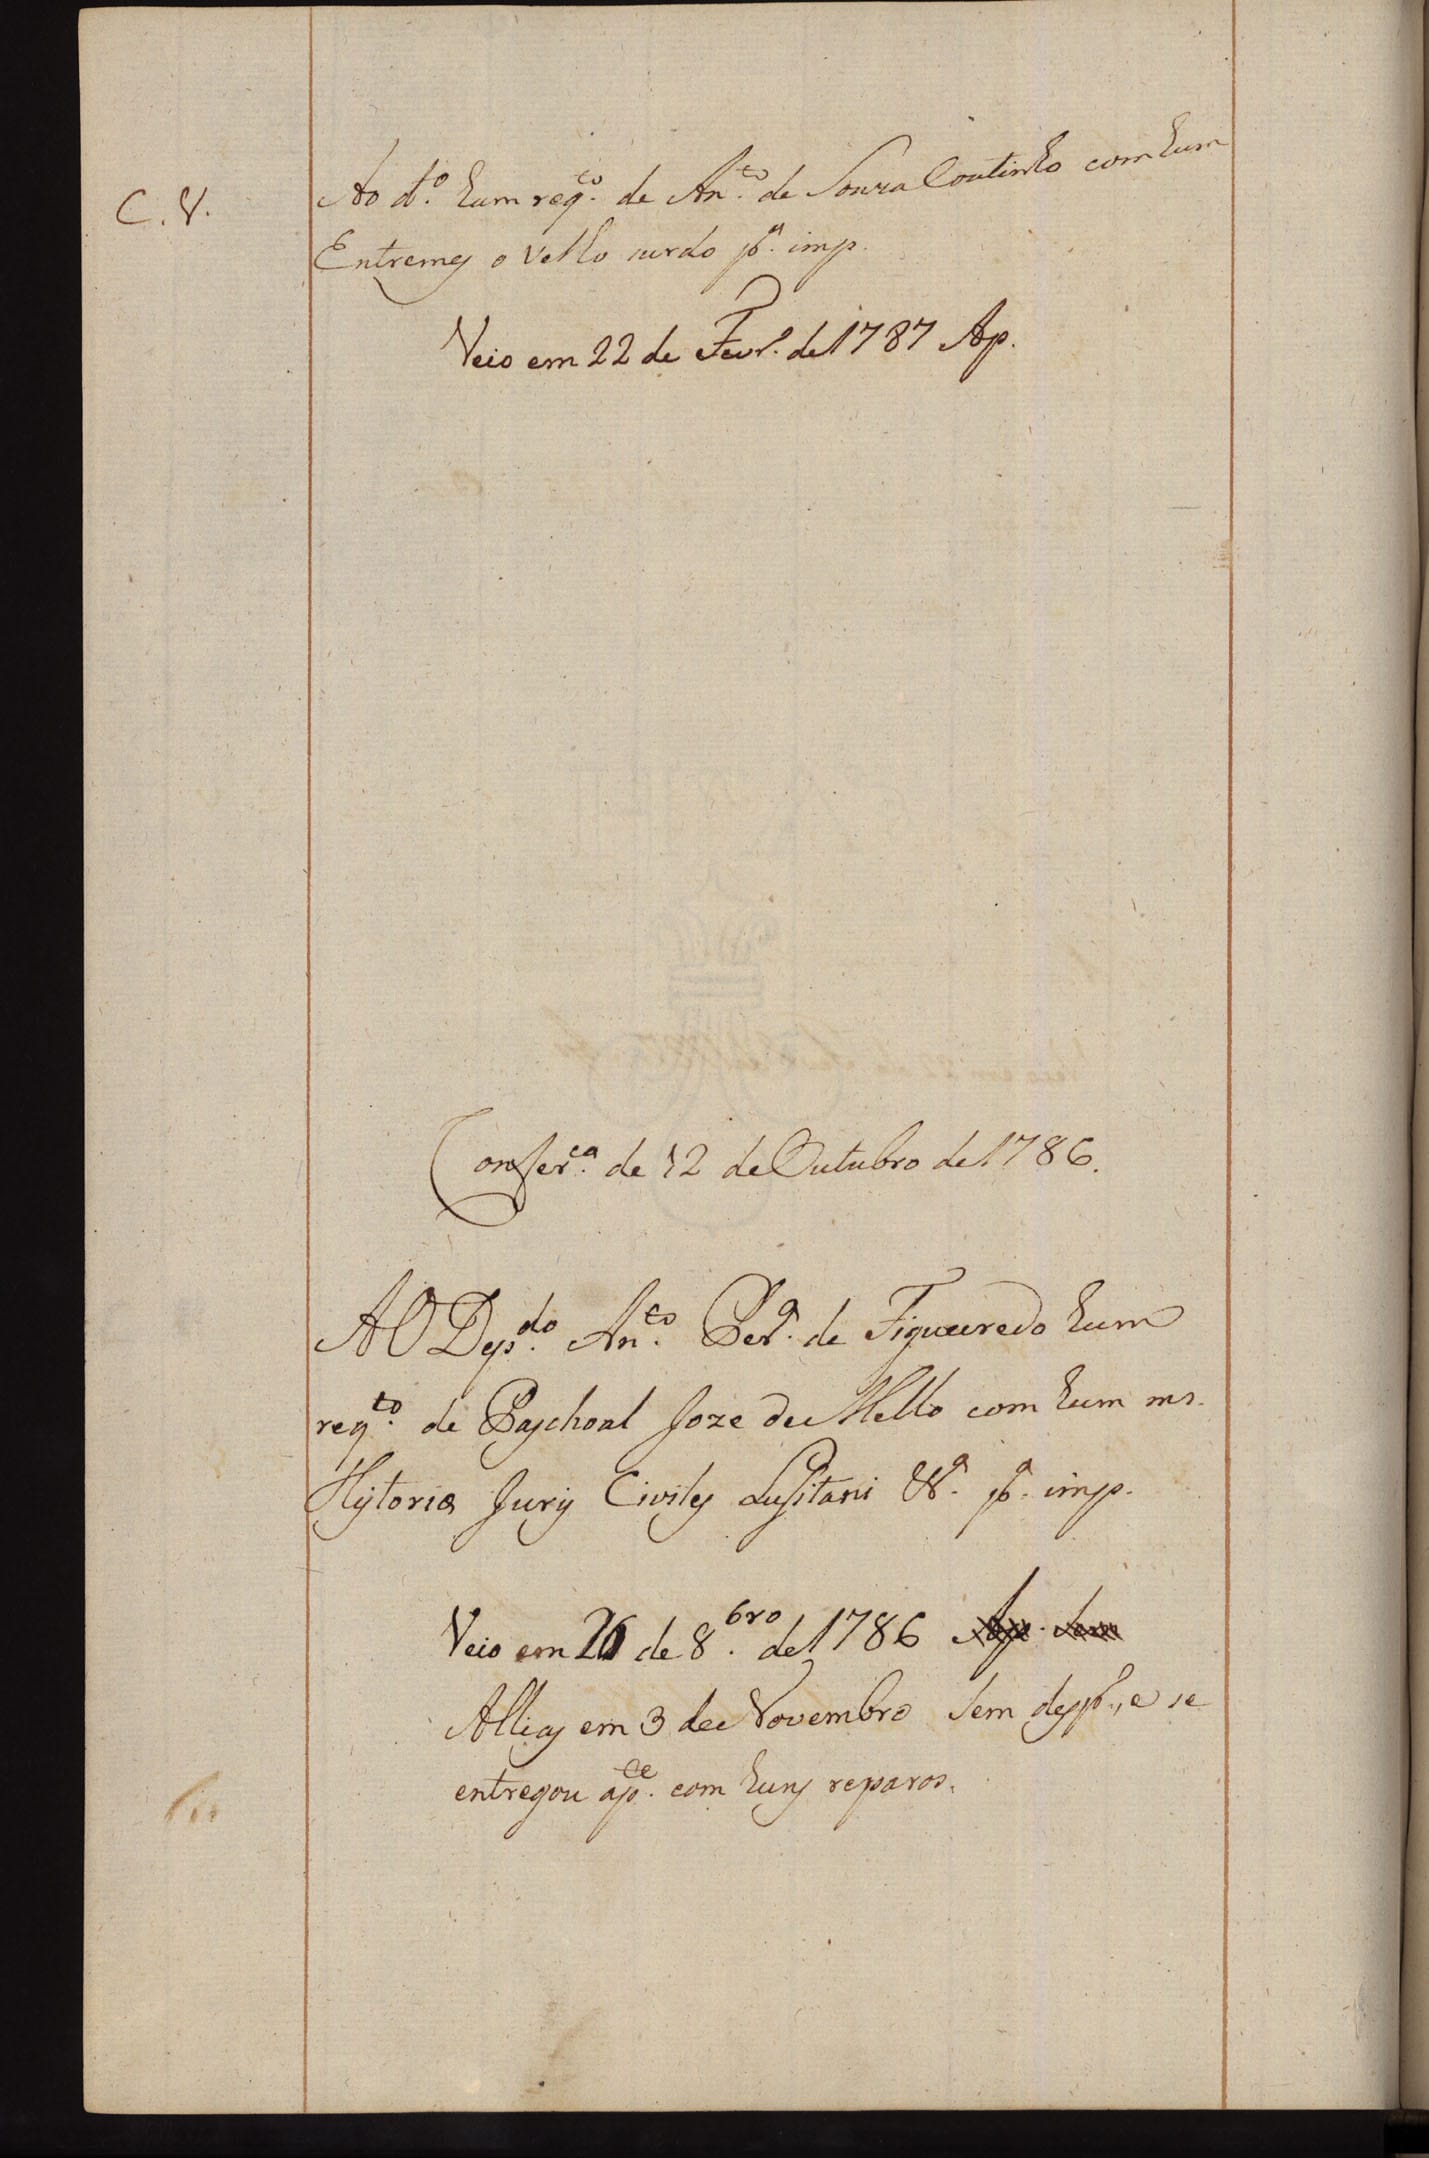 C. V.
Ao d.º hum req.to de An.to de Souza Coutinho com hum
Entremes o Velho surdo p.ª imp.
Veio em 22 de Fevr.º de 1787 Ap.
Confer.ca de 12 de Outubro de 1786.
AO Dep.do An.to Per.ª de Figueiredo hum
req.to de Paschoal Joze de Mello com hum ms.
Hystoria Juris Civiles Lusitani &.ª p.ª imp.
Veio em 26 de 8.bro de 1786 Ap. Sem
Allias em 3 de Novembro Sem desp.º, e se
entregou ap.te com huns reparos.